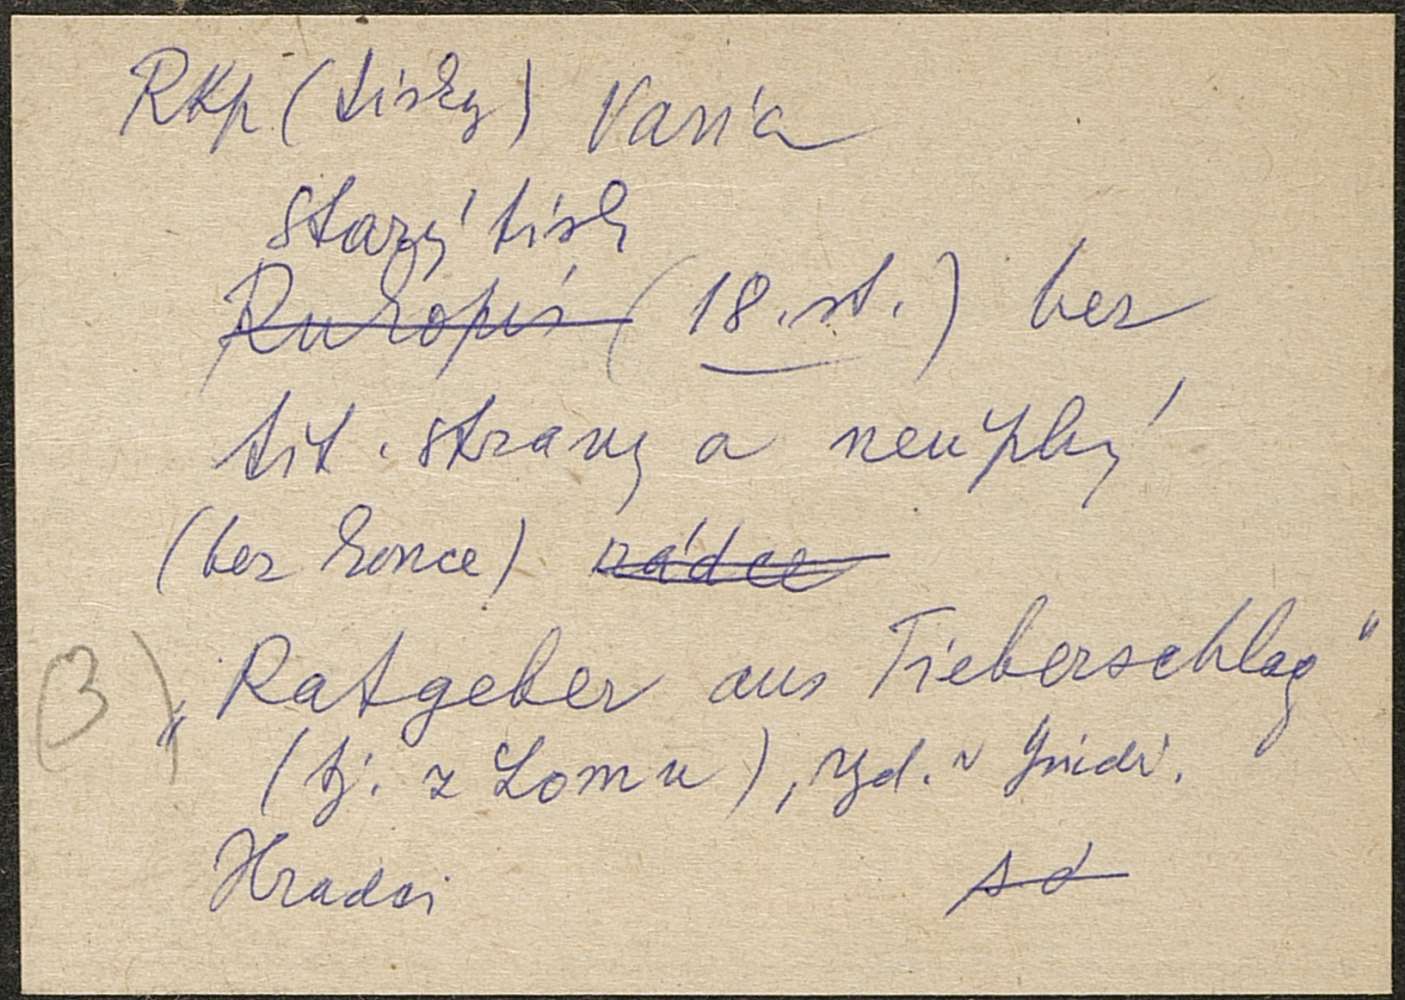 Rkp (tisky) Varia
starý tisk
Rukopis (18. st.) bez
tit. strany a neúplný
(bez konce) rádce
3) „Ratgeber aus Tieberschlag“
(tj. z Lomu), vyd. v Jindř.
Hradci sd